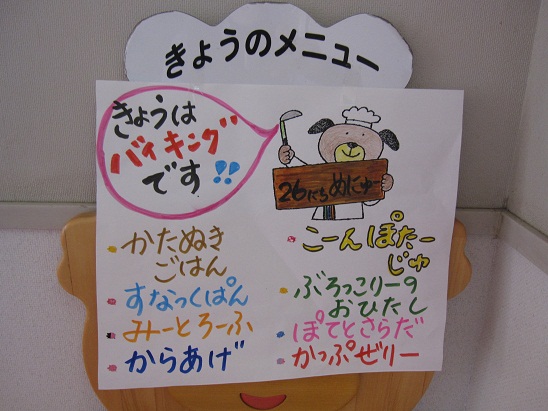 きょうのメニュー
きょうは
バイキング
です!!
26にち めにゅー
かたぬき
ごはん
すなっくぱん
みーとろーふ
からあげ
こーんぽたー
じゅ
ぶろっこりーの
おひたし
ぽてとさらだ
かっぷぜりー